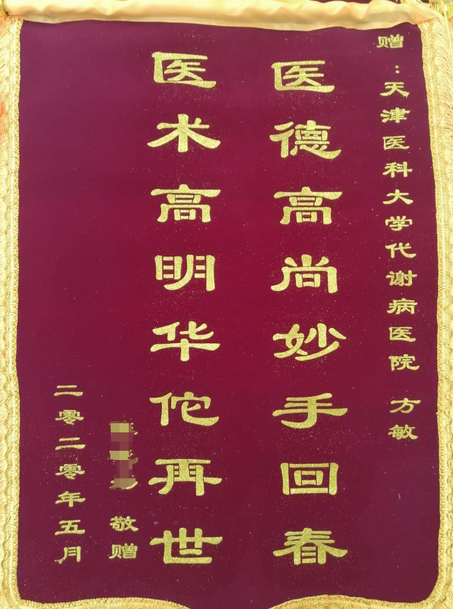 赠：天津医科大学代谢病医院 方敏
医德高尚妙手回春
医术高明华佗再世
敬赠
二零二零年五月